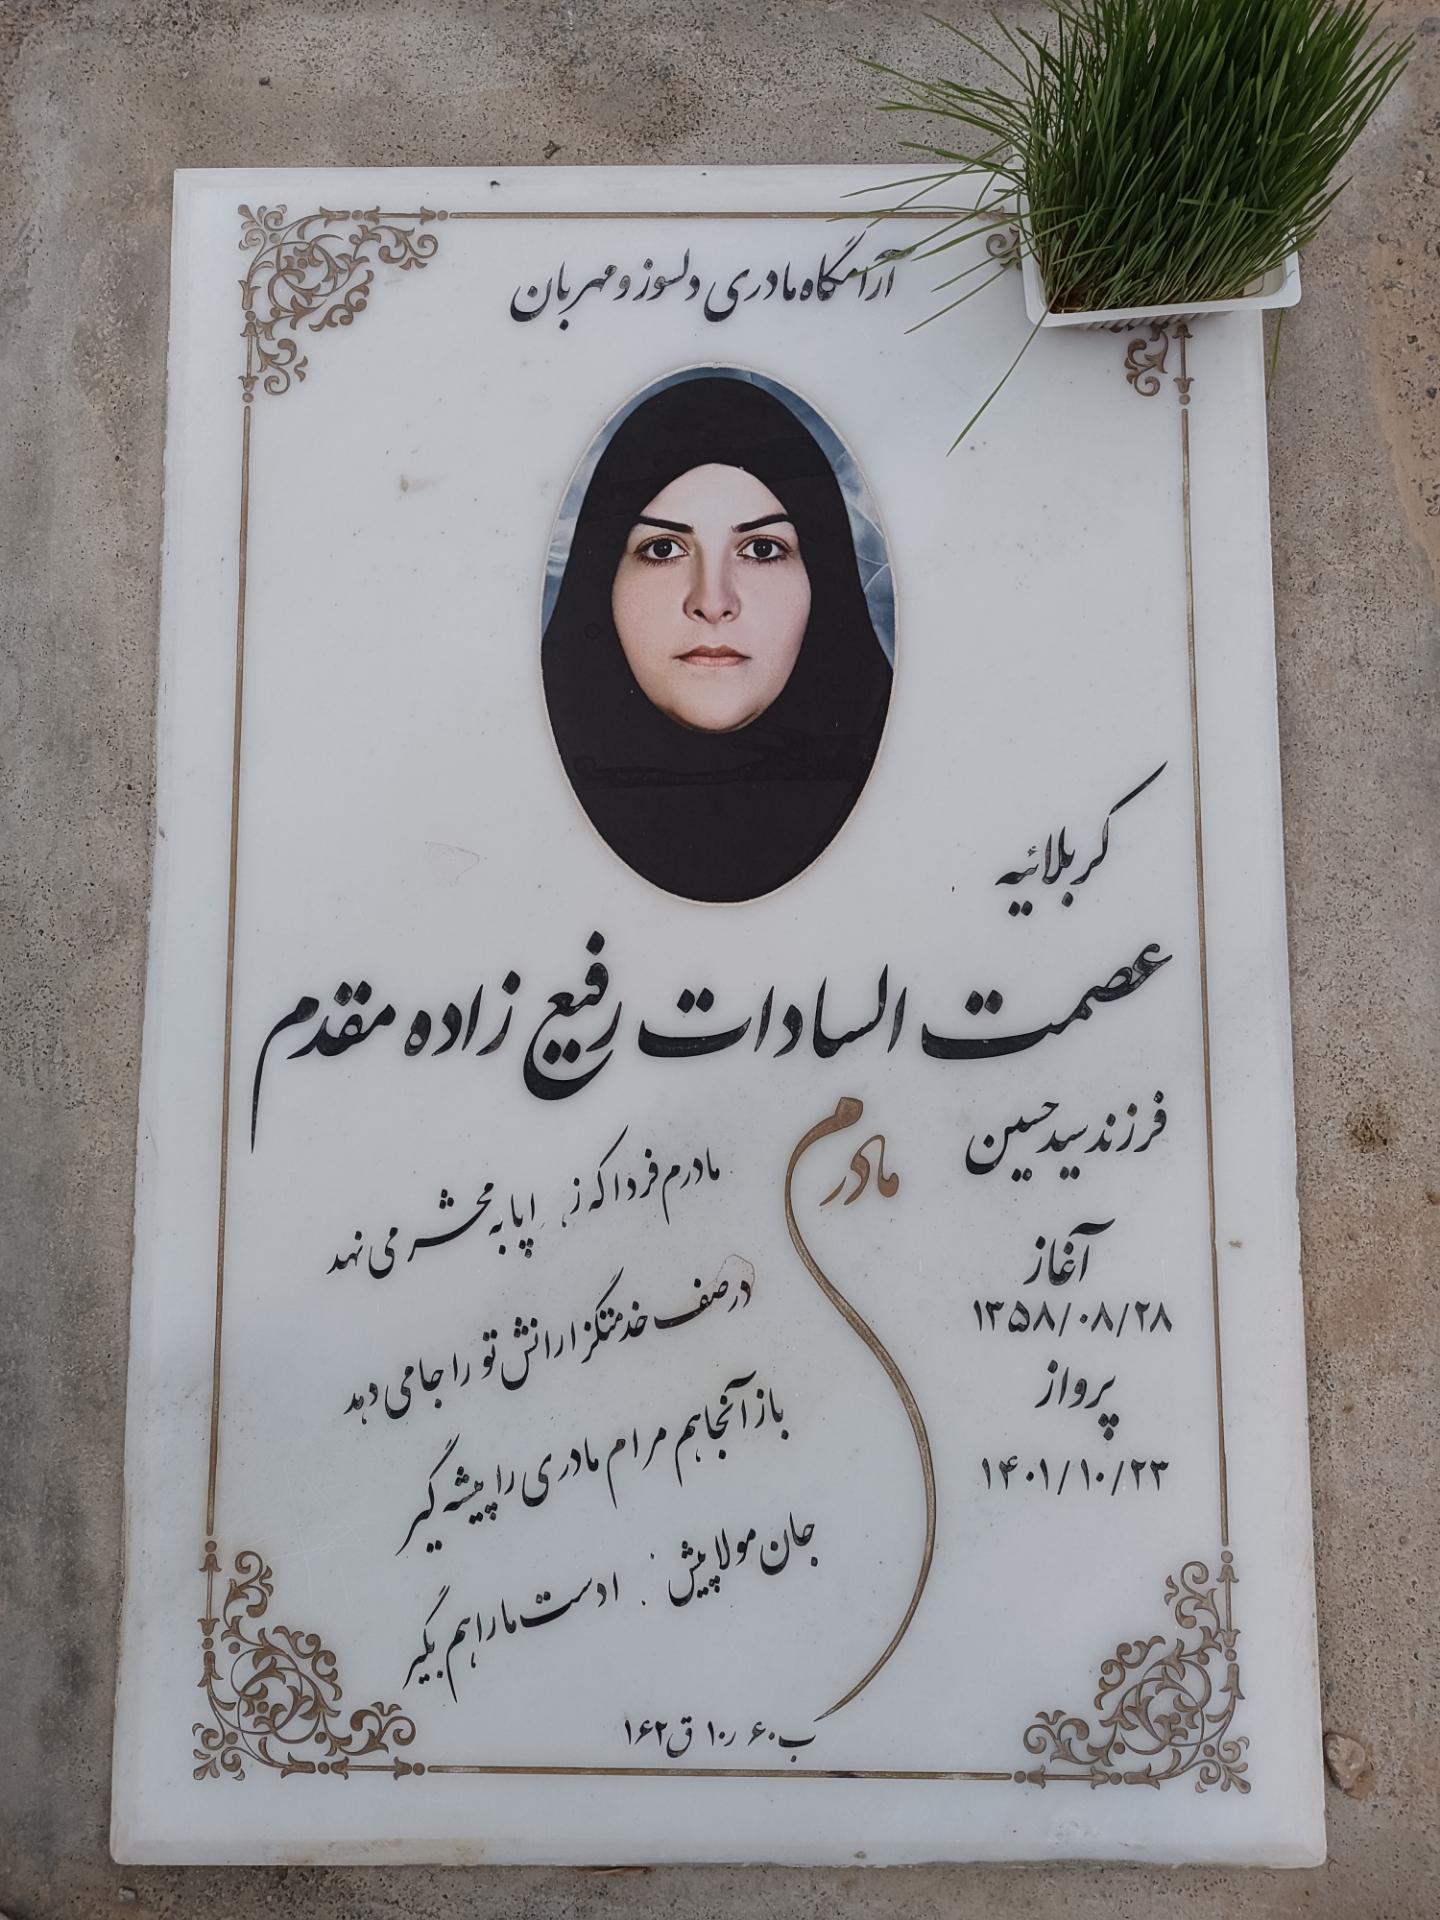 آرامگاه مادری دلسوز و مهربان
کربلائیه
عصمت السادات رفیع زاده مقدم
فرزند سید حسین
آغاز
۱۳۵۸/۰۸/۲۸
پرواز
۱۴۰۱/۱۰/۲۳
مادرم
مادرم فردا که ز ا پا به محشر می نهد
در صف خدمتگزارانش تو را جا می دهد
باز آنجا هم مرام مادری را پیشه گیر
جان مولا پیش ا دست ما را هم بگیر
ب۶۰ ر۱۰ ق۱۶۲